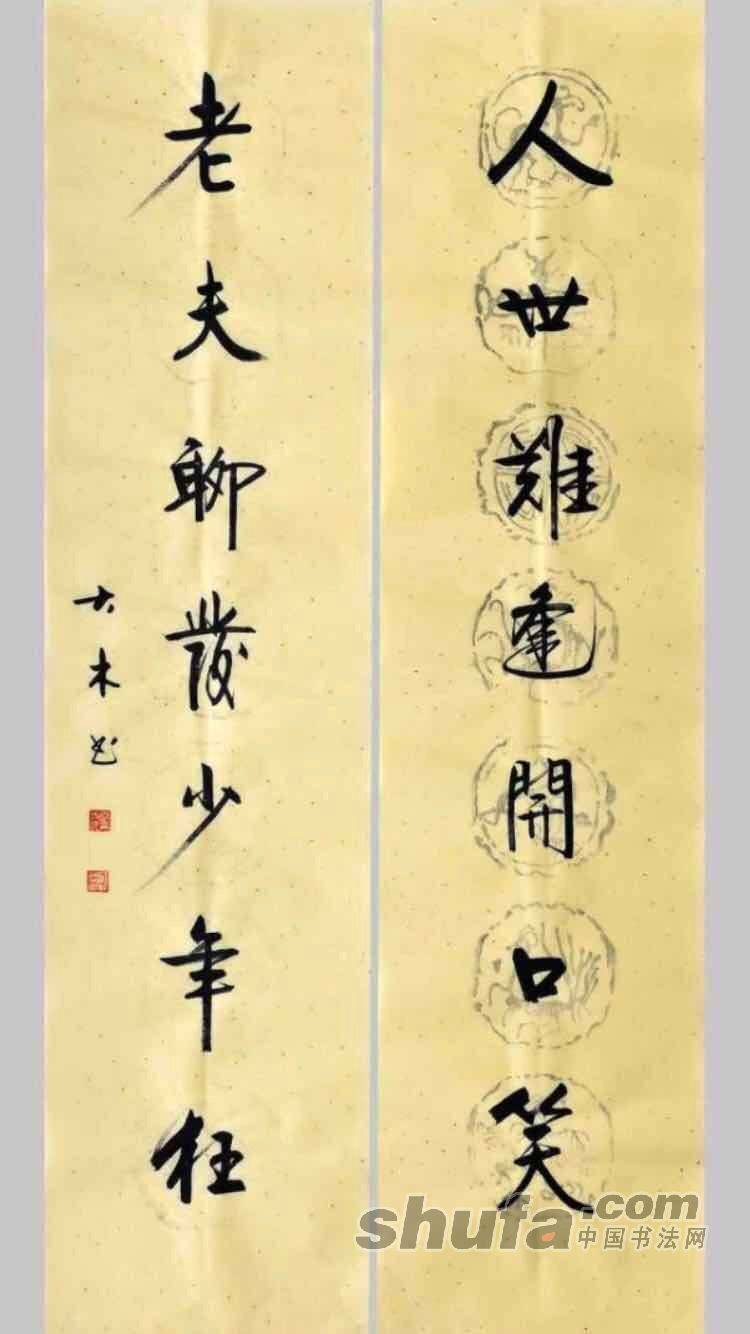 人世難逢開口笑
老夫聊發少年狂
大木书
shufa.com
中国书法网